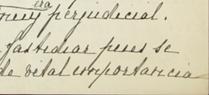 era
muy perjudicial.
fastidiar pues se
de vital importancia